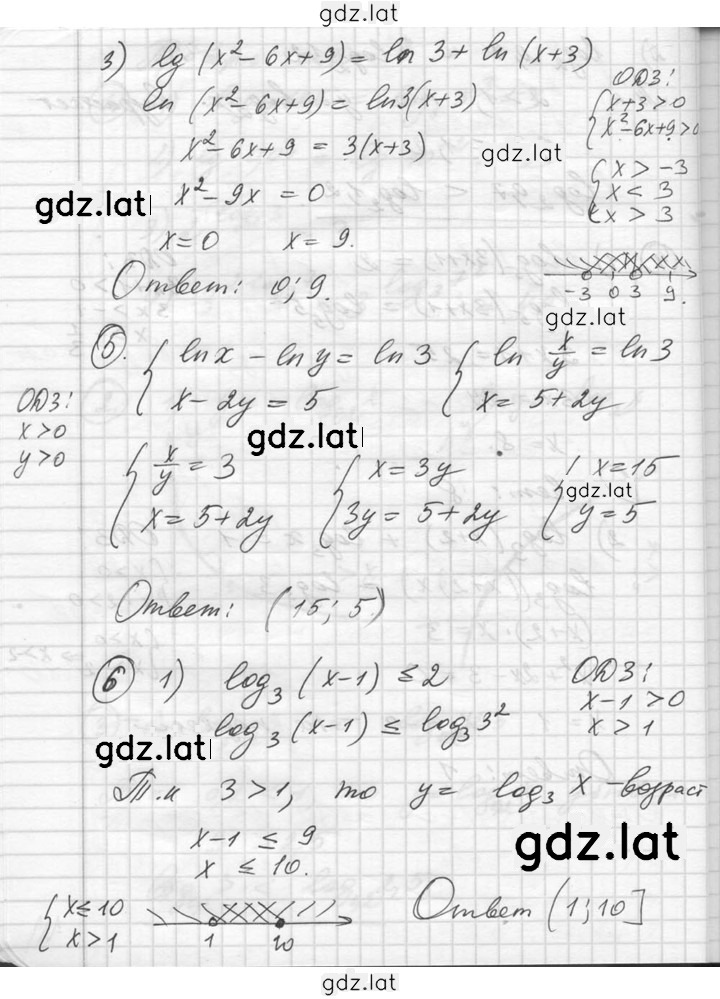 gdz.lat
3) lg (x² - 6x + 9) = ln 3 + ln (x+3)
ln (x² - 6x + 9) = ln 3(x+3)
x² - 6x + 9 = 3(x+3)
x² - 9x = 0
x = 0 x = 9.
Ответ: 0; 9.
ОДЗ:
{ x+3 > 0
x² - 6x + 9 > 0
gdz.lat
{ x > -3
x < 3
x > 3
gdz.lat
-3 0 3 9.
gdz.lat
5. { ln x - ln y = ln 3
x - 2y = 5
{ ln x/y = ln 3
x = 5 + 2y
ОДЗ:
x > 0
y > 0
gdz.lat
{ x/y = 3
x = 5 + 2y
{ x = 3y
3y = 5 + 2y
{ x = 15
gdz.lat
y = 5
Ответ: (15; 5)
6 1) log₃ (x-1) ≤ 2
log₃ (x-1) ≤ log₃ 3²
ОДЗ:
x - 1 > 0
x > 1
gdz.lat
Т.к 3 > 1, то y = log₃ x - возраст
x - 1 ≤ 9
x ≤ 10.
gdz.lat
{ x ≤ 10
x > 1
1 10
Ответ (1; 10]
gdz.lat